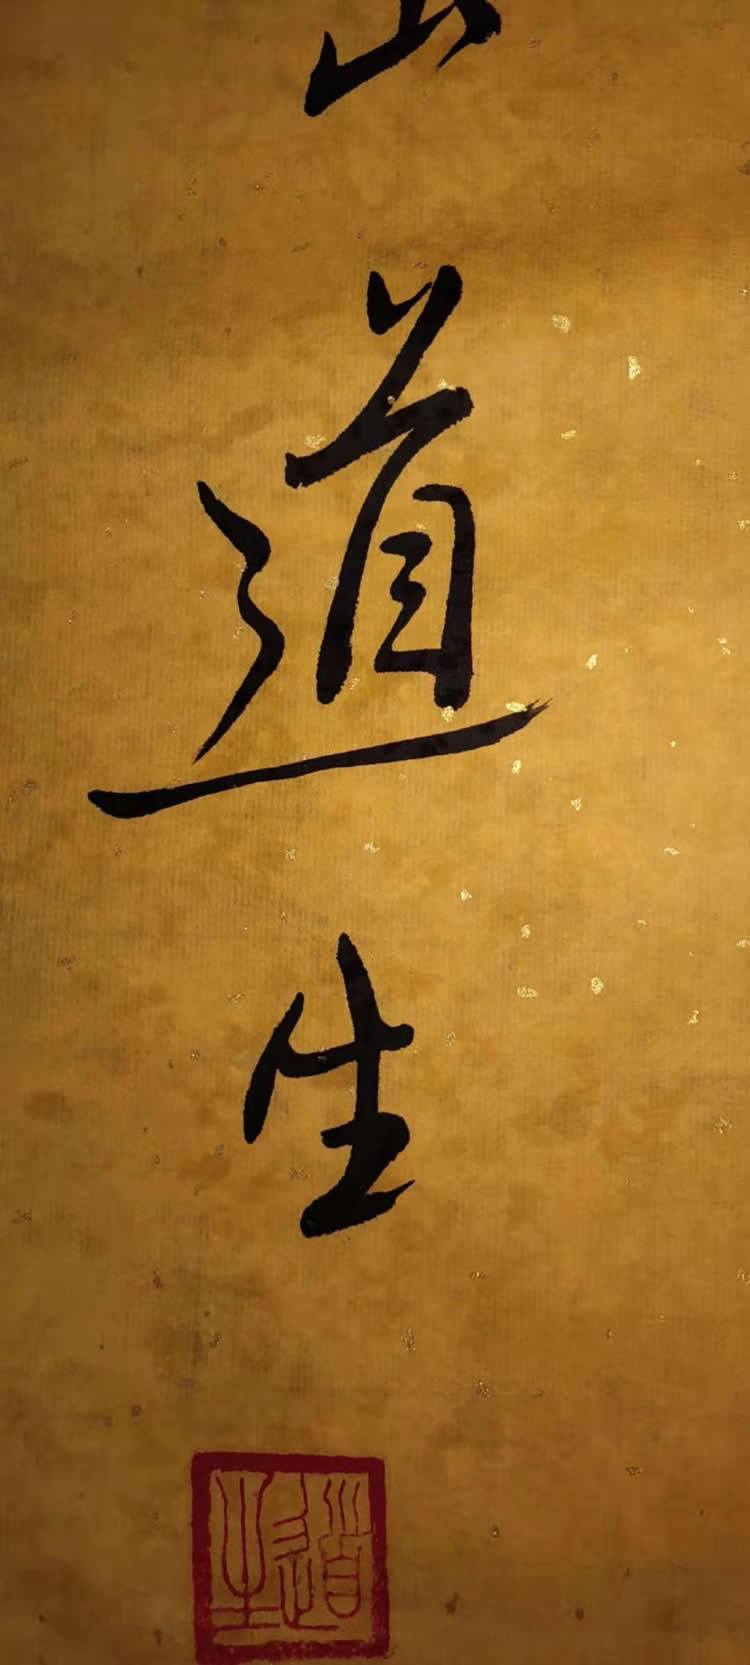 山
道
生
道生